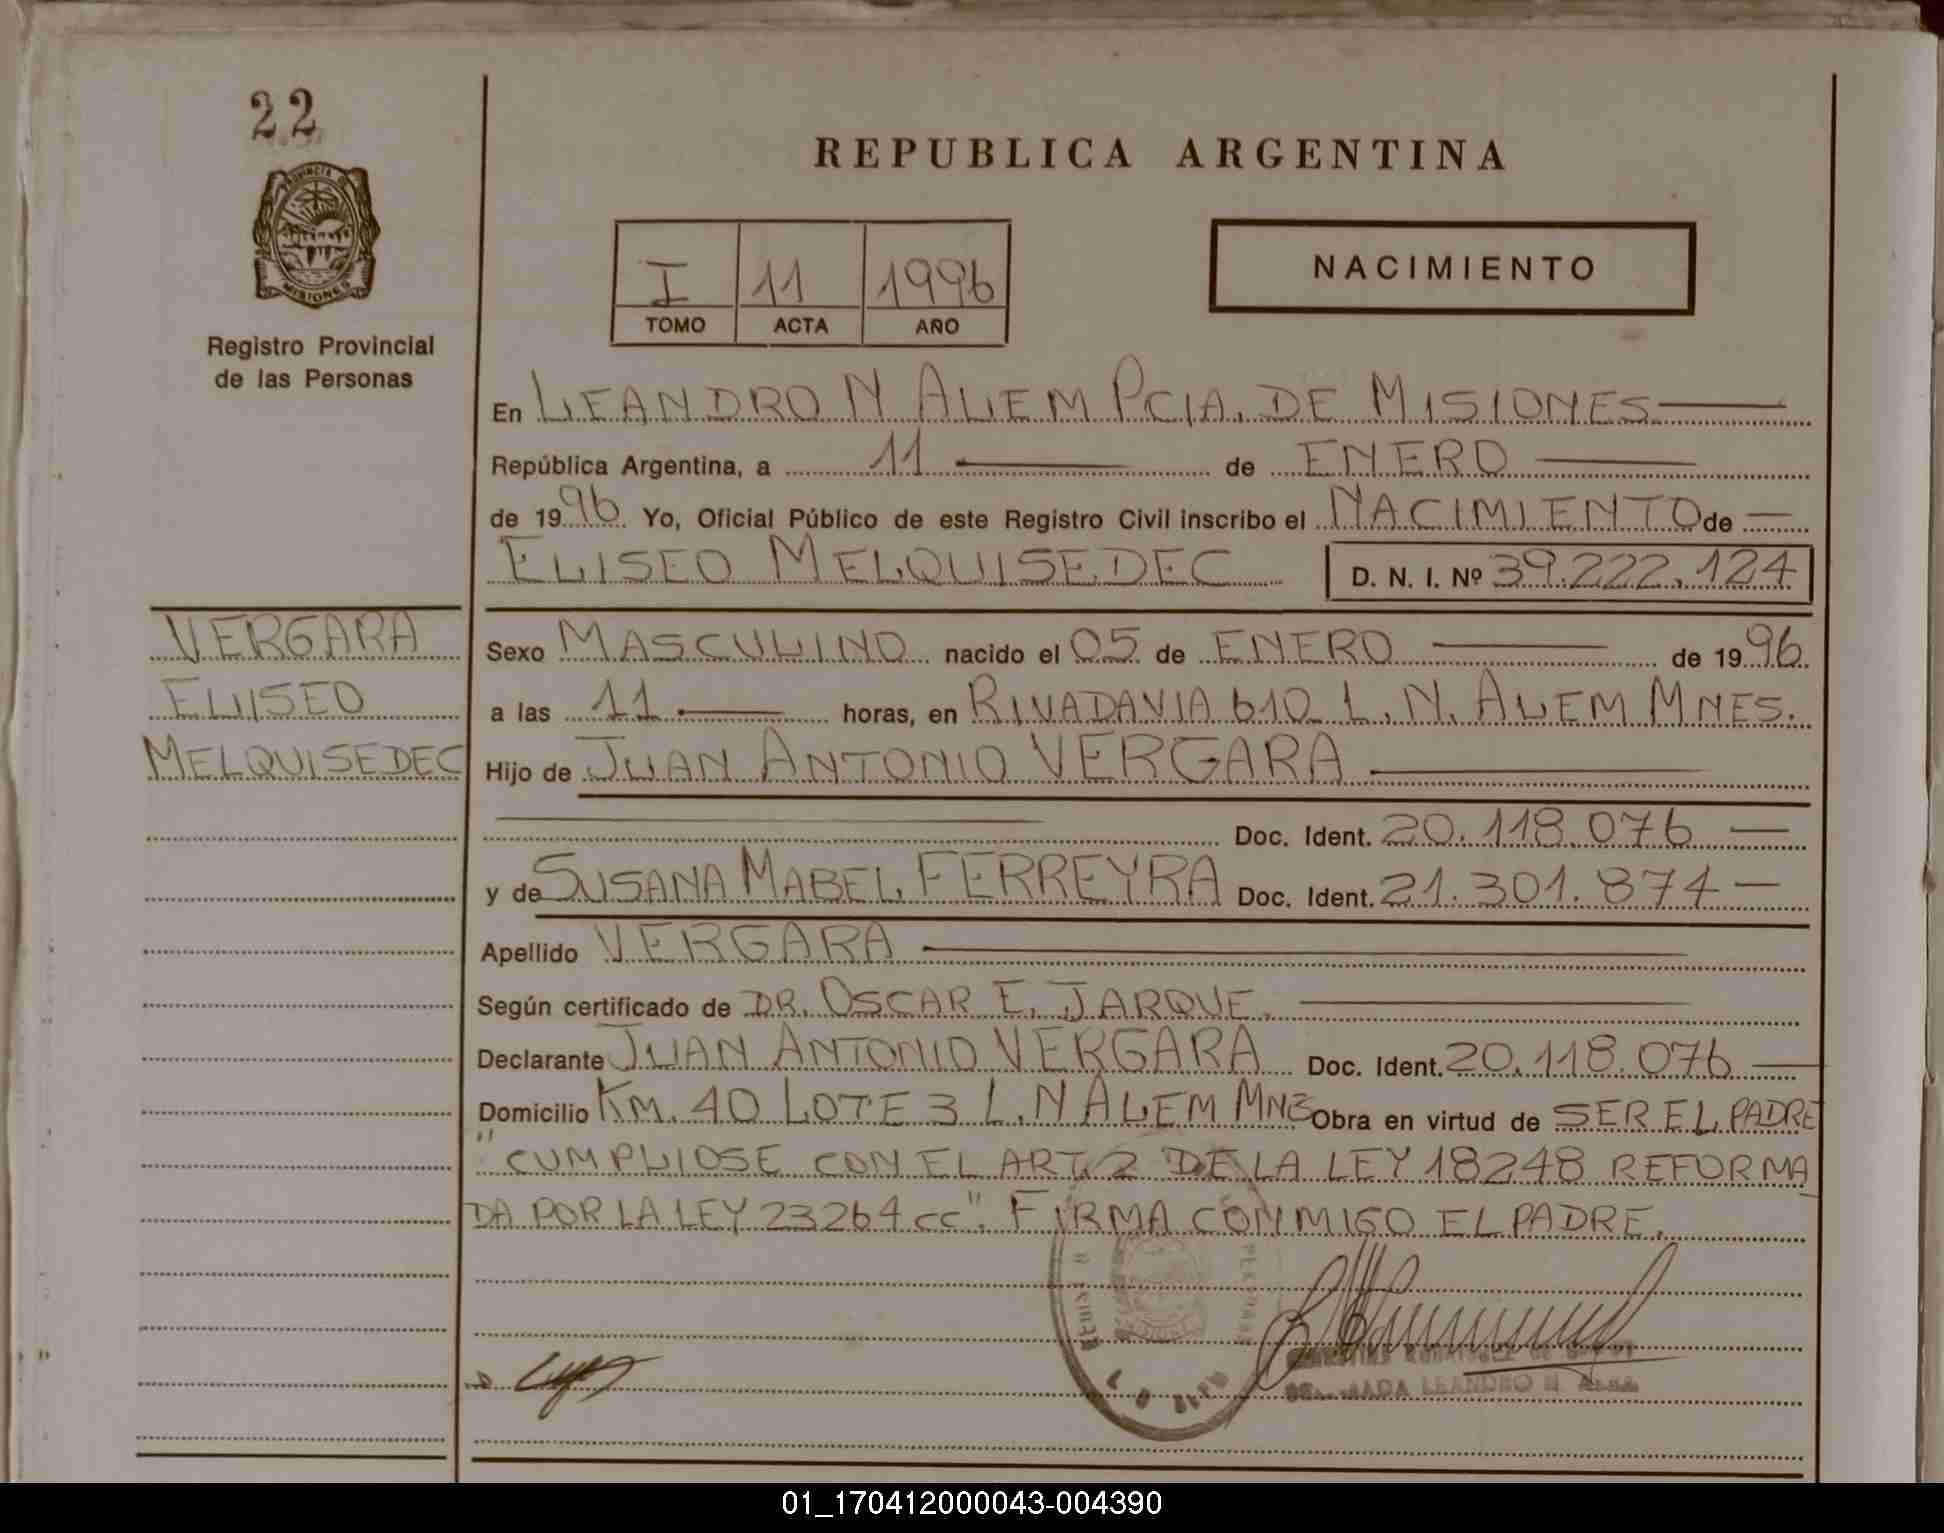 22
PROVINCIA DE
MISIONES
Registro Provincial
de las Personas
REPUBLICA ARGENTINA
I 11 1996
TOMO ACTA AÑO
NACIMIENTO
En LEANDRO N ALEM PCIA. DE MISIONES
República Argentina, a 11 de ENERO
de 1996 Yo, Oficial Público de este Registro Civil inscribo el NACIMIENTO de
ELISEO MELQUISEDEC D. N. I. Nº 39.222.124
VERGARA
ELISEO
MELQUISEDEC
Sexo MASCULINO nacido el 05 de ENERO de 1996
a las 11 horas, en RIVADAVIA 610 L. N. ALEM MNES.
Hijo de JUAN ANTONIO VERGARA
Doc. Ident. 20.118.076
y de SUSANA MABEL FERREYRA Doc. Ident. 21.301.874
Apellido VERGARA
Según certificado de DR. OSCAR E. JARQUE.
Declarante JUAN ANTONIO VERGARA Doc. Ident. 20.118.076
Domicilio KM. 40 LOTE 3 L. N ALEM MNES Obra en virtud de SER EL PADRE
"CUMPLIOSE CON EL ART. 2 DE LA LEY 18248 REFORMA
DA POR LA LEY 23264 CC". FIRMA CONMIGO EL PADRE.
LEANDRO N. ALEM
01_170412000043-004390